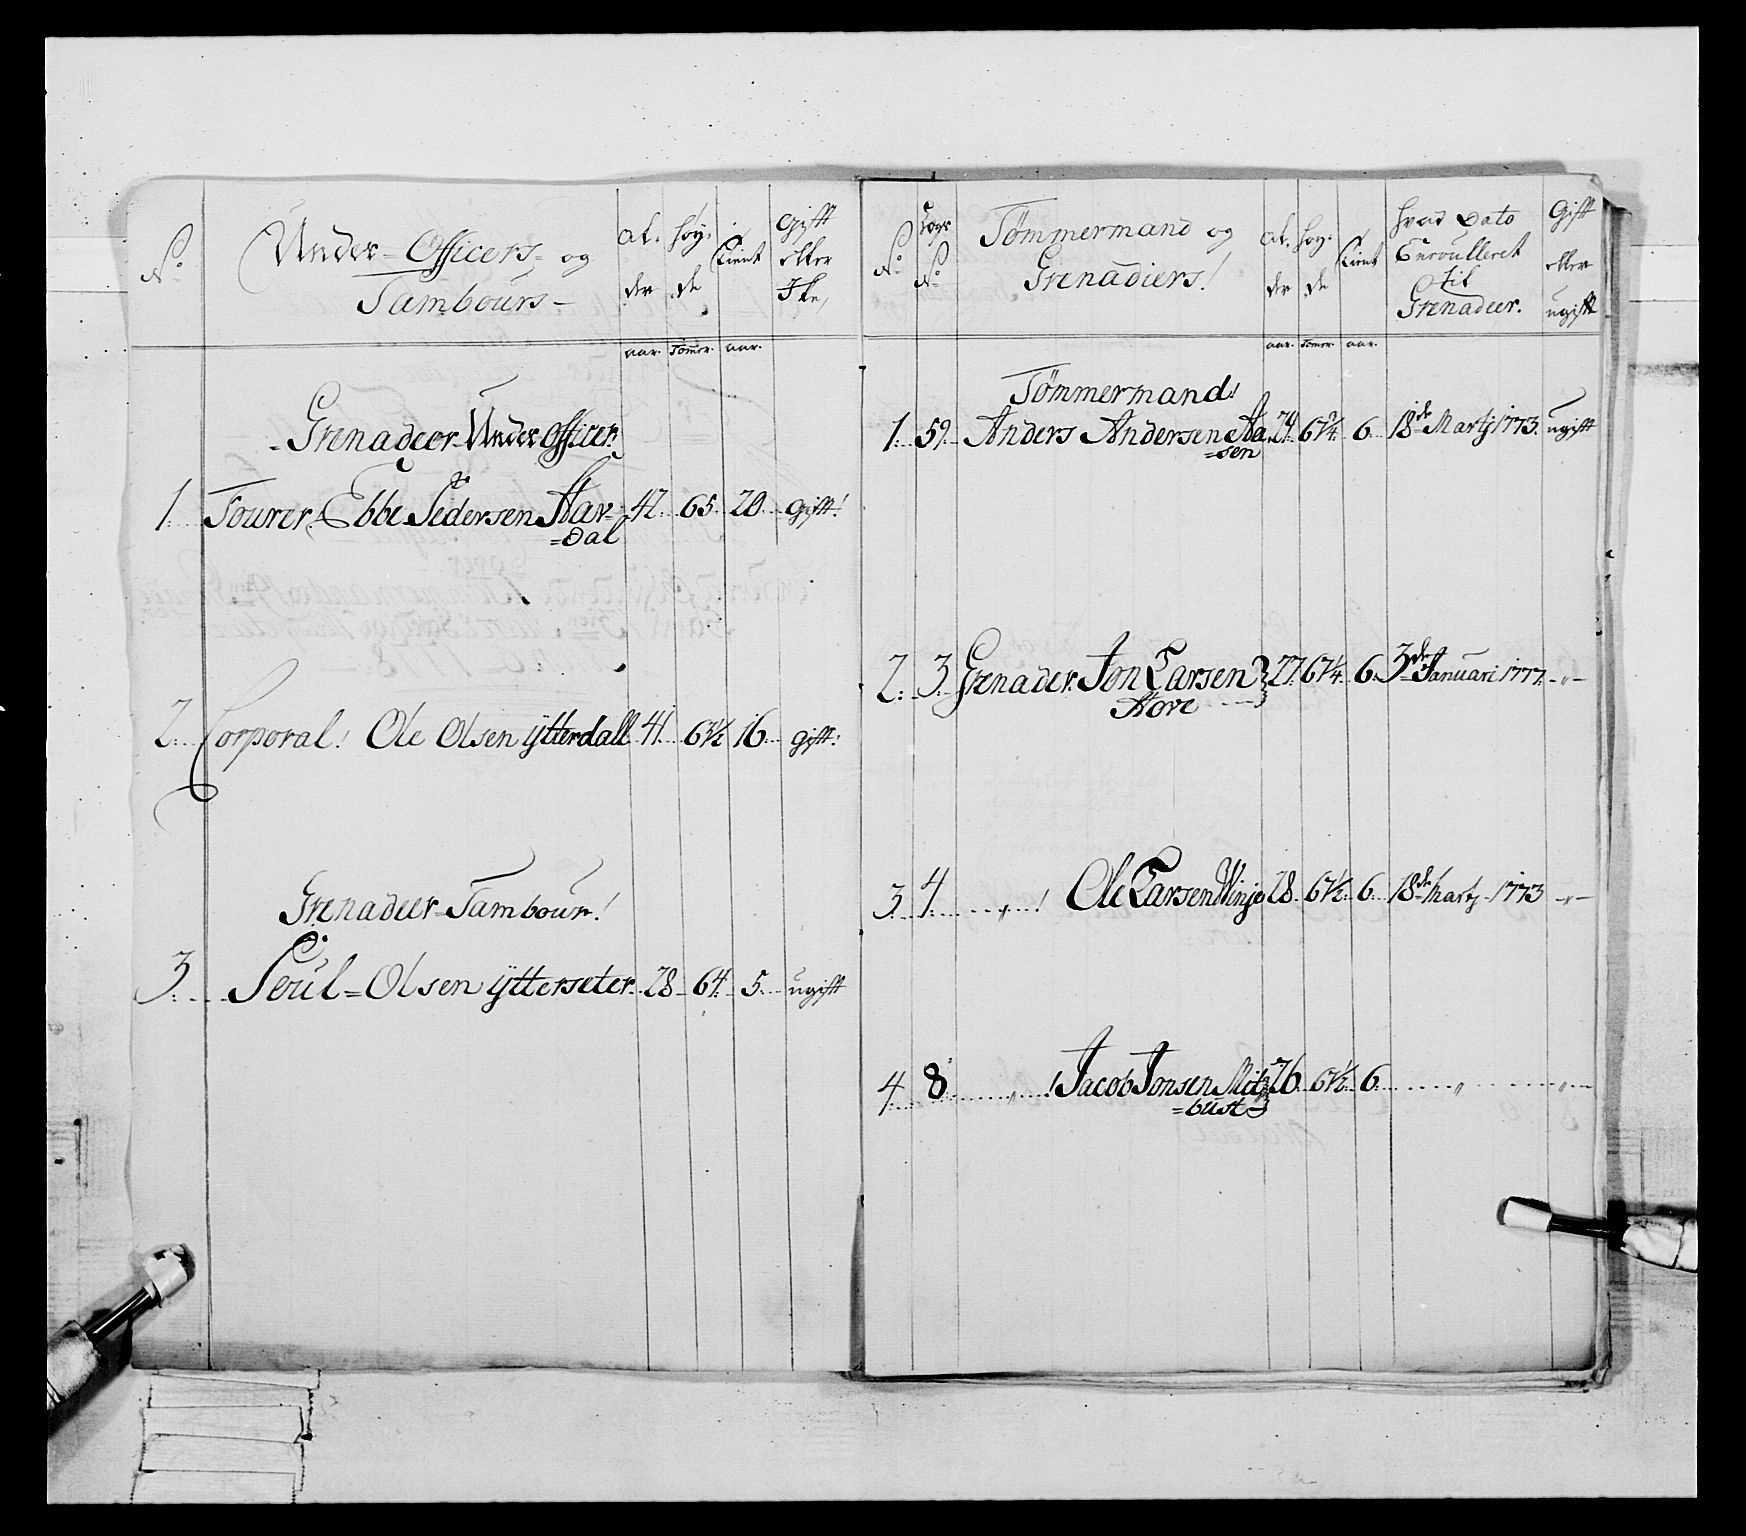 No
Under-Officers- og
Tambours-
al-
der
høy-
de
tient
Gift
eller
Ike,
aar. Tomer. aar.
Grenadeer-Under officer.
1. Fourer, Ebbe Pedersen Aar- 42. 65. 20. gift!
=dal
2. Corporal! Ole Olsen ÿtterdall 41. 63½ 16. gift!
Grenadeer-Tambour!
3. Poul=Olsen ÿtterseter 28. 64. 5. ugift
No
No
Tømmermand og
Grenadiers!
al-
der
høy-
de
tient
hvad Dato
Enroulleret
til
Grenadeer.
Gift
eller
ugift
aar. Tomer. aar.
Tømmermand!
1. 59. Anders Andersen Aa 6. 18de Martj 1773. ugift
=sen
2. 3. Grenader. Jon Larsen 27. 67¼. 6. 3de Januari 1777. -"-
Hove
3. 4. -"-! Ole Larsen Winje 28. 67½. 6. 18de Martj 1773 -"-
4. 8. "! Jacob Jonsen Mit 26. 67½. 6. " "
=bust